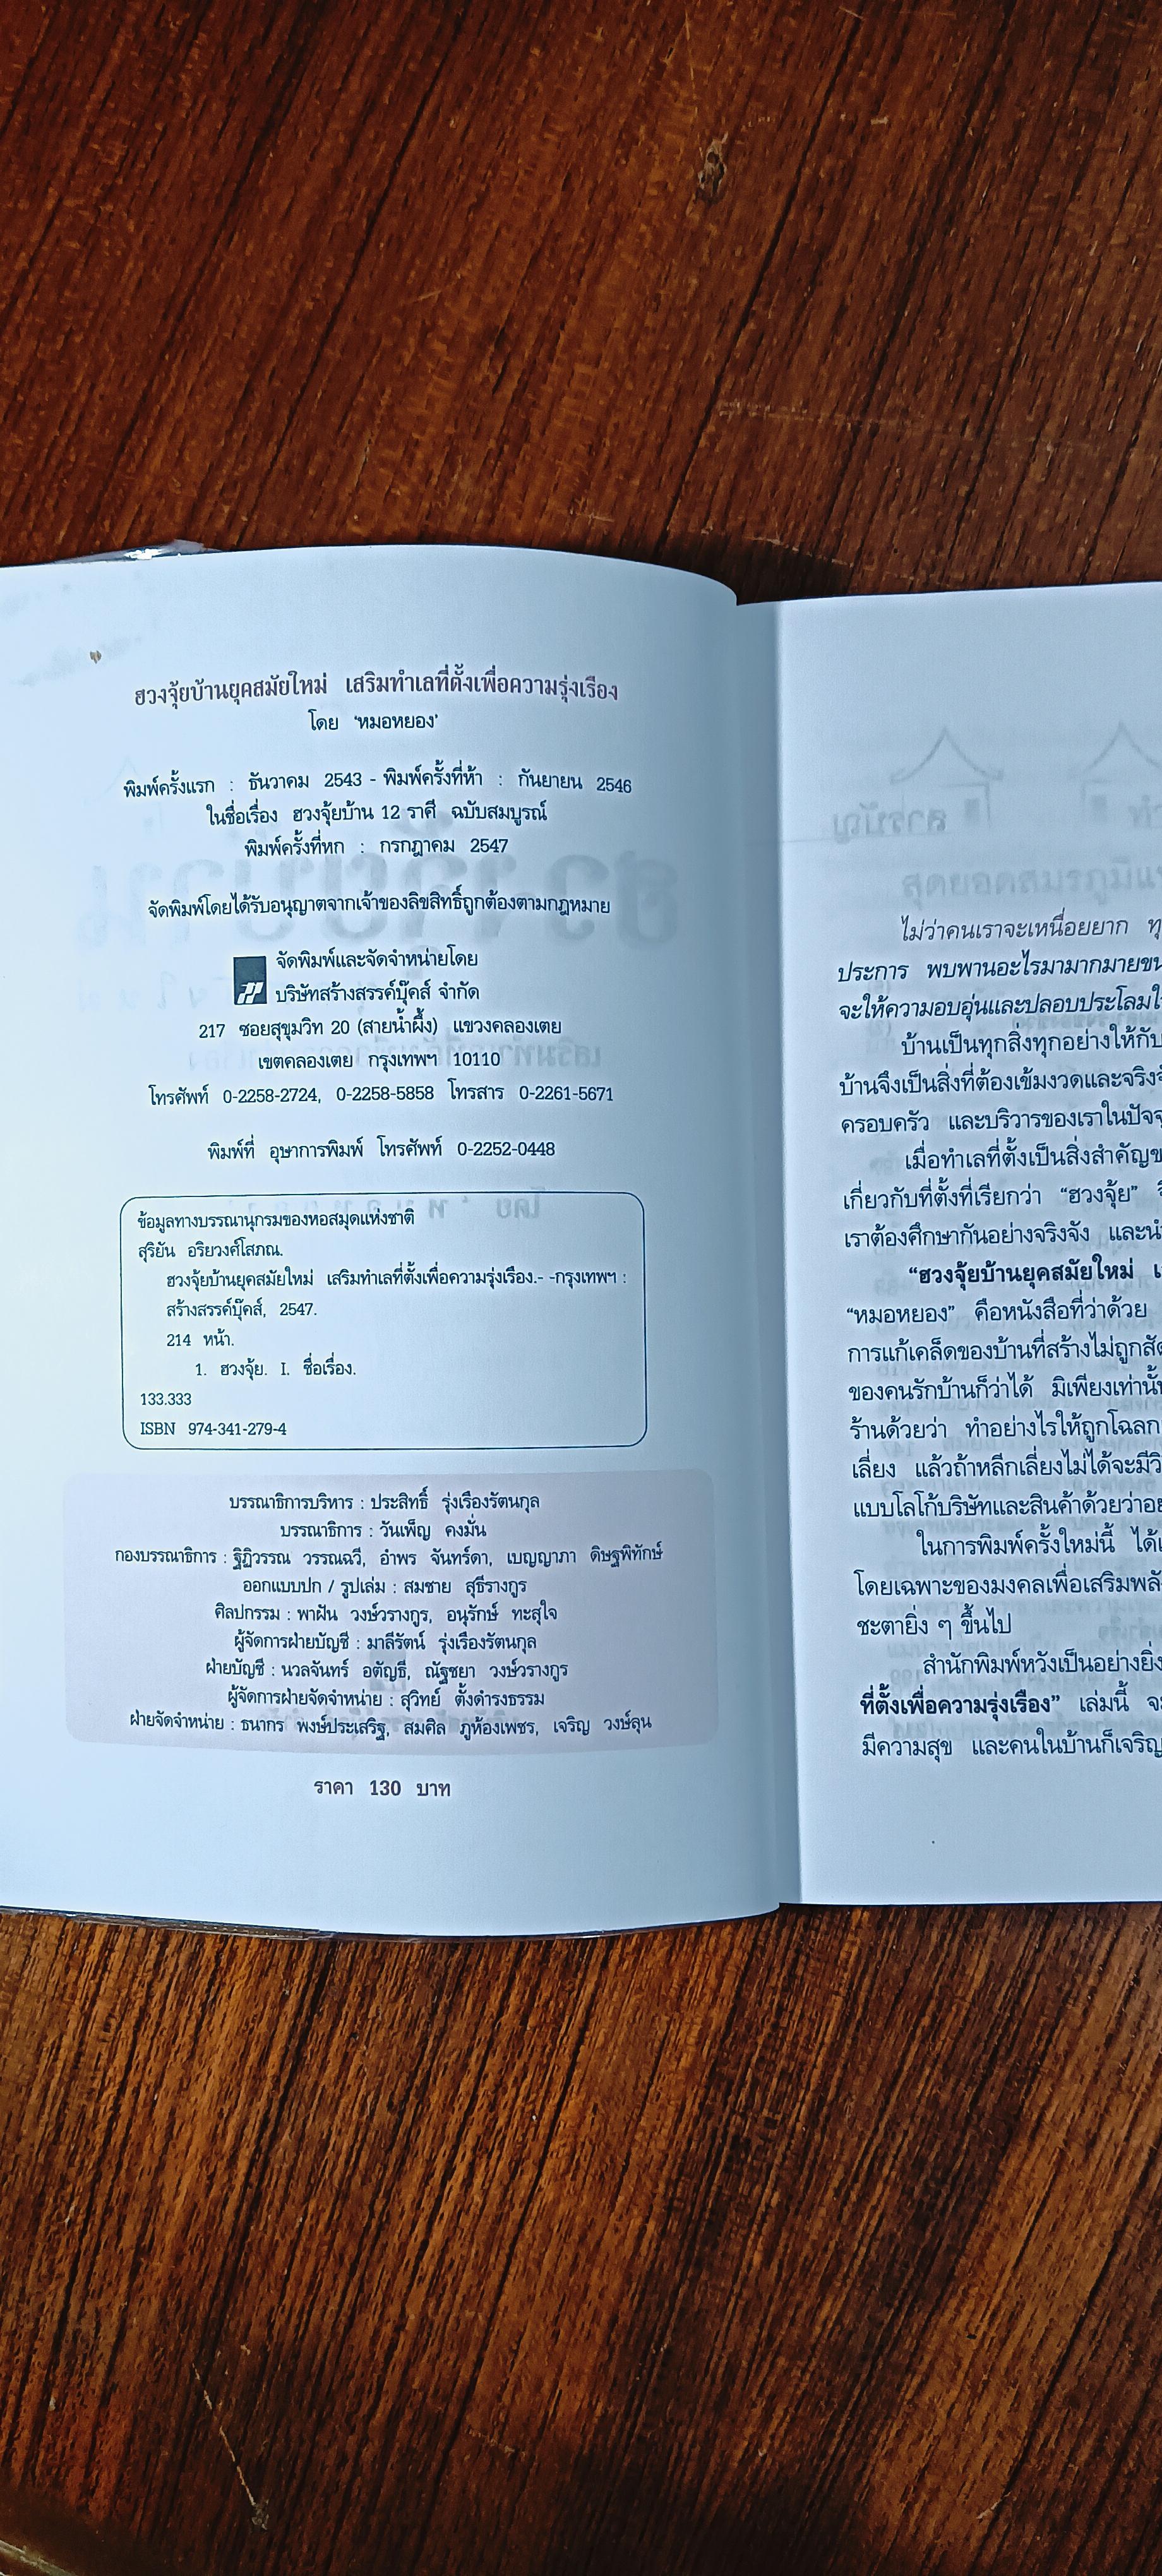 ฮวงจุ้ยบ้านยุคสมัยใหม่ เสริมทำเลที่ตั้งเพื่อความรุ่งเรือง
โดย 'หมอหยอง'
พิมพ์ครั้งแรก : ธันวาคม 2543 - พิมพ์ครั้งที่ห้า : กันยายน 2546
ในชื่อเรื่อง ฮวงจุ้ยบ้าน 12 ราศี ฉบับสมบูรณ์
พิมพ์ครั้งที่หก : กรกฎาคม 2547
จัดพิมพ์โดยได้รับอนุญาตจากเจ้าของลิขสิทธิ์ถูกต้องตามกฎหมาย
จัดพิมพ์และจัดจำหน่ายโดย
บริษัทสร้างสรรค์บุ๊คส์ จำกัด
217 ซอยสุขุมวิท 20 (สายน้ำผึ้ง) แขวงคลองเตย
เขตคลองเตย กรุงเทพฯ 10110
โทรศัพท์ 0-2258-2724, 0-2258-5858 โทรสาร 0-2261-5671
พิมพ์ที่ อุษาการพิมพ์ โทรศัพท์ 0-2252-0448
ข้อมูลทางบรรณานุกรมของหอสมุดแห่งชาติ
สุริยัน อริยวงศ์โสภณ.
ฮวงจุ้ยบ้านยุคสมัยใหม่ เสริมทำเลที่ตั้งเพื่อความรุ่งเรือง.- -กรุงเทพฯ :
สร้างสรรค์บุ๊คส์, 2547.
214 หน้า.
1. ฮวงจุ้ย. I. ชื่อเรื่อง.
133.333
ISBN 974-341-279-4
บรรณาธิการบริหาร : ประสิทธิ์ รุ่งเรืองรัตนกุล
บรรณาธิการ : วันเพ็ญ คงมั่น
กองบรรณาธิการ : ฐิฏิวรรณ วรรณฉวี, อำพร จันทร์ดา, เบญญาภา ดิษฐพิทักษ์
ออกแบบปก / รูปเล่ม : สมชาย สุธีรางกูร
ศิลปกรรม : พาฝัน วงษ์วรางกูร, อนุรักษ์ ทะสุใจ
ผู้จัดการฝ่ายบัญชี : มาลีรัตน์ รุ่งเรืองรัตนกุล
ฝ่ายบัญชี : นวลจันทร์ อตัญธี, ณัฐชยา วงษ์วรางกูร
ผู้จัดการฝ่ายจัดจำหน่าย : สุวิทย์ ตั้งดำรงธรรม
ฝ่ายจัดจำหน่าย : ธนากร พงษ์ประเสริฐ, สมศิล ภูห้องเพชร, เจริญ วงษ์ลุน
ราคา 130 บาท
ไม่ว่าคนเราจะเหนื่อยยาก
ประการ พบพานอะไรมามากมาย
จะให้ความอบอุ่นและปลอบประโลม
บ้านเป็นทุกสิ่งทุกอย่างให้กับ
บ้านจึงเป็นสิ่งที่ต้องเข้มงวดและจริง
ครอบครัว และบริวารของเราใน
เมื่อทำเลที่ตั้งเป็นสิ่งสำคัญ
เกี่ยวกับที่ตั้งที่เรียกว่า "ฮวงจุ้ย"
เราต้องศึกษากันอย่างจริงจัง
"ฮวงจุ้ยบ้านยุคสมัยใหม่
"หมอหยอง" คือหนังสือที่ว่าด้วย
การแก้เคล็ดของบ้านที่สร้างไม่ถูก
ของคนรักบ้านก็ว่าได้ มิเพียงเท่านั้น
ร้านด้วยว่า ทำอย่างไรให้ถูกโฉลก
เลี่ยง แล้วถ้าหลีกเลี่ยงไม่ได้จะมี
แบบโลโก้บริษัทและสินค้าด้วยว่า
ในการพิมพ์ครั้งใหม่นี้ ได้
โดยเฉพาะของมงคลเพื่อเสริม
ชะตายิ่ง ๆ ขึ้นไป
สำนักพิมพ์หวังเป็นอย่างยิ่ง
ที่ตั้งเพื่อความรุ่งเรือง" เล่มนี้
มีความสุข และคนในบ้านก็เจริญ